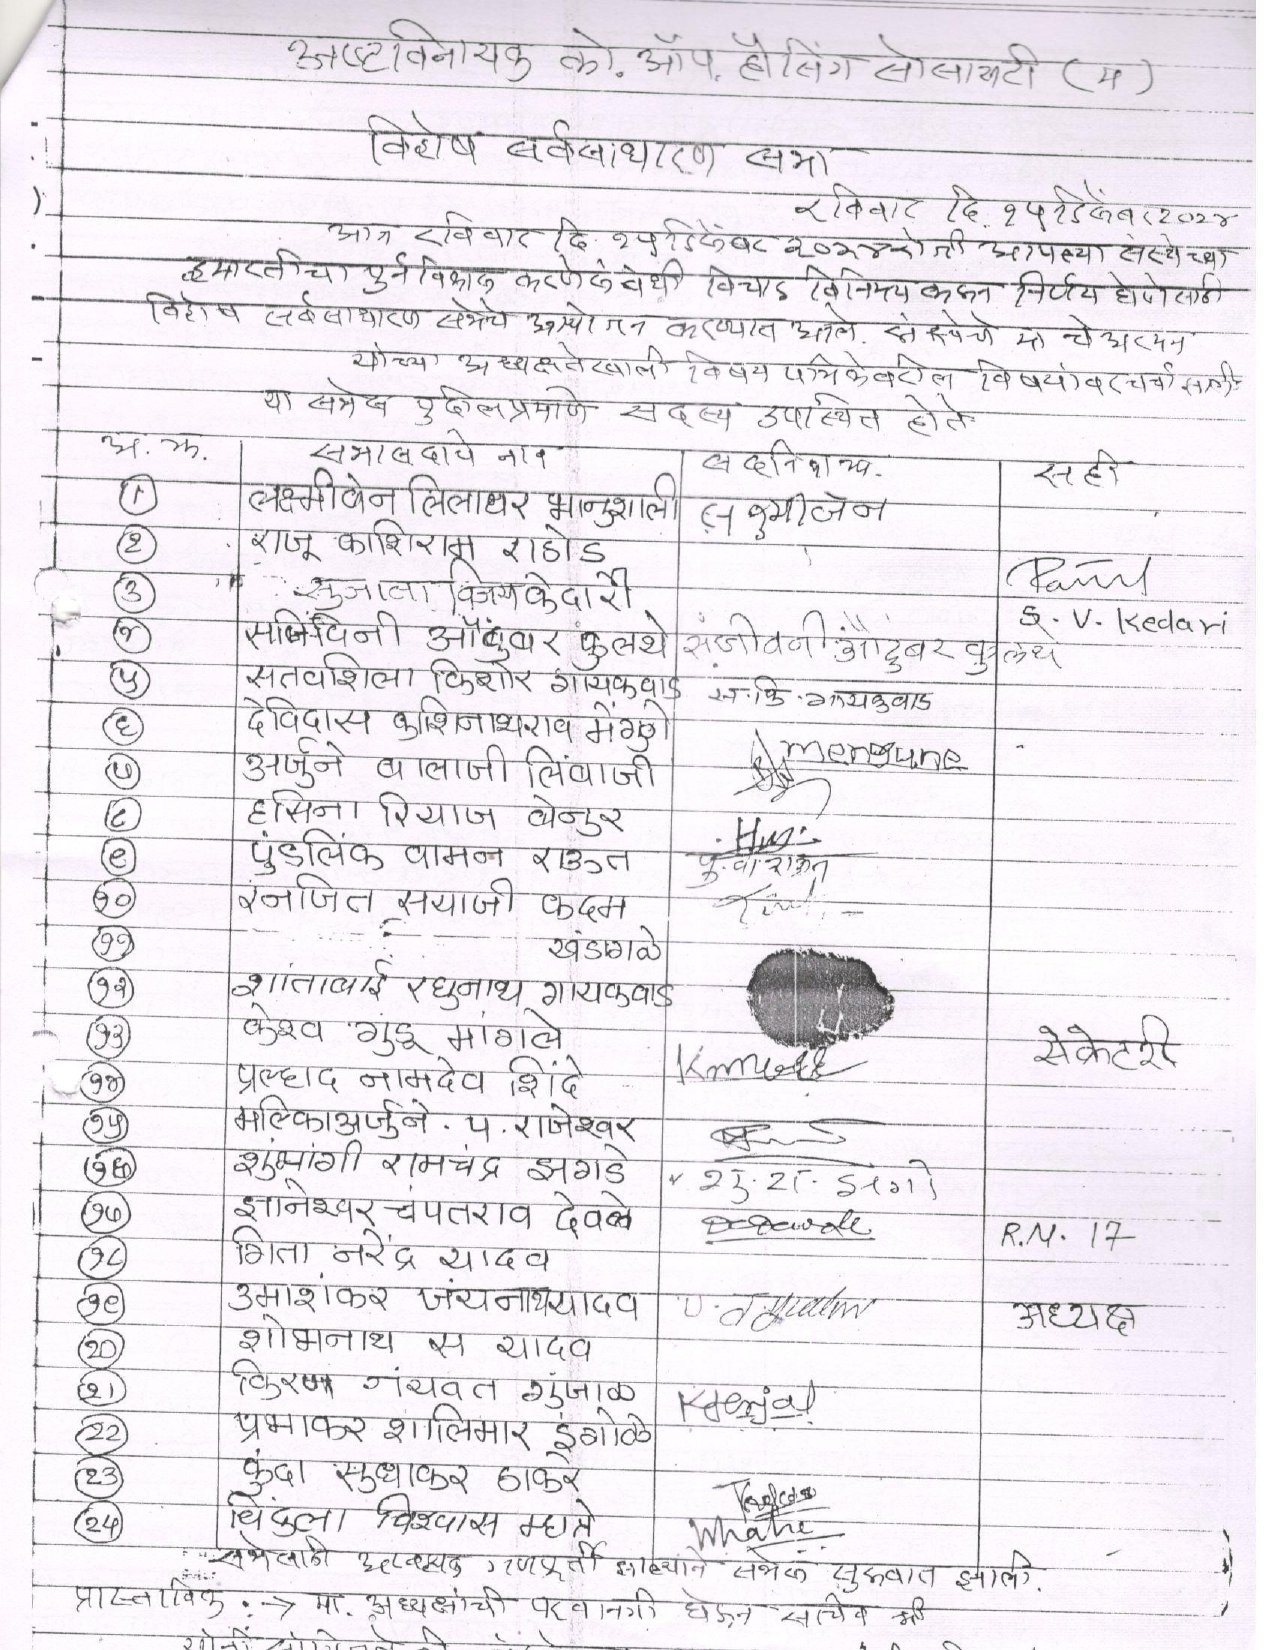 अष्टविनायक को. ऑप. हौसिंग सोसायटी (म)
विशेष सर्वसाधारण सभा
रविवार दि. १५ डिसेंबर २०२४
आज रविवार दि. १५ डिसेंबर २०२४ रोजी आपल्या संस्थेच्या
इमारतीचा पुर्नविकास करणेसंबंधी विचार विनिमय करून निर्णय घेणेसाठी
विशेष सर्वसाधारण सभेचे आयोजन करण्यात आले.
यांच्या अध्यक्षतेखाली विषय पत्रिकेवरील विषयांवर चर्चा
या सभेस पुढीलप्रमाणे सदस्य उपास्थित होते
अ. क्र. सभासदाचे नाव सही
१ लक्ष्मीबेन लिलाधर भानुशाली लक्ष्मीबेन
२ राजू काशिराम राठोड
३ सुजाता विजय केदारी S. V. Kedari
४ संजिविनी औदुंबर कुलथे संजीवनी औदुंबर कुलथे
५ सतवशिला किशोर गायकवाड स. कि. गायकवाड
६ देविदास काशिनाथराव मेंगुणे Mengune
७ अर्जुने बालाजी लिंबाजी
८ हसिना रियाज बेन्नुर
९ पुंडलिंक वामन राऊत पु. वा राऊत
१० रंनजित सयाजी कदम
११ खंडागळे
१२ शांताबाई रघुनाथ गायकवाड
१३ केशव गुंडू मांगले सेक्रेटरी
१४ प्रल्हाद नामदेव शिंदे
१५ मल्लिकाअर्जुने. प. राजेश्वर
१६ शुंभांगी रामचंद्र झगडे शु. रा. झगडे
१७ ज्ञानेश्वर चंपतराव देवळे R.M. 17
१८ गिता नरेंद्र यादव
१९ उमाशंकर जंयनाथ यादव अध्यक्ष
२० शोभनाथ स यादव
२१ किरण गंयवत गुंजाळ
22 प्रभाकर शालिमार इंगोळे
23 कुंदा सुधाकर ठाकरे
24 विश्वास म्हात्रे Mhatre
सभेसाठी आवश्यक गणपूर्ती झाल्याने सभेस सुरुवात झाली.
प्रास्ताविक :→ मा. अध्यक्षांची परवानगी घेऊन सचिव श्री